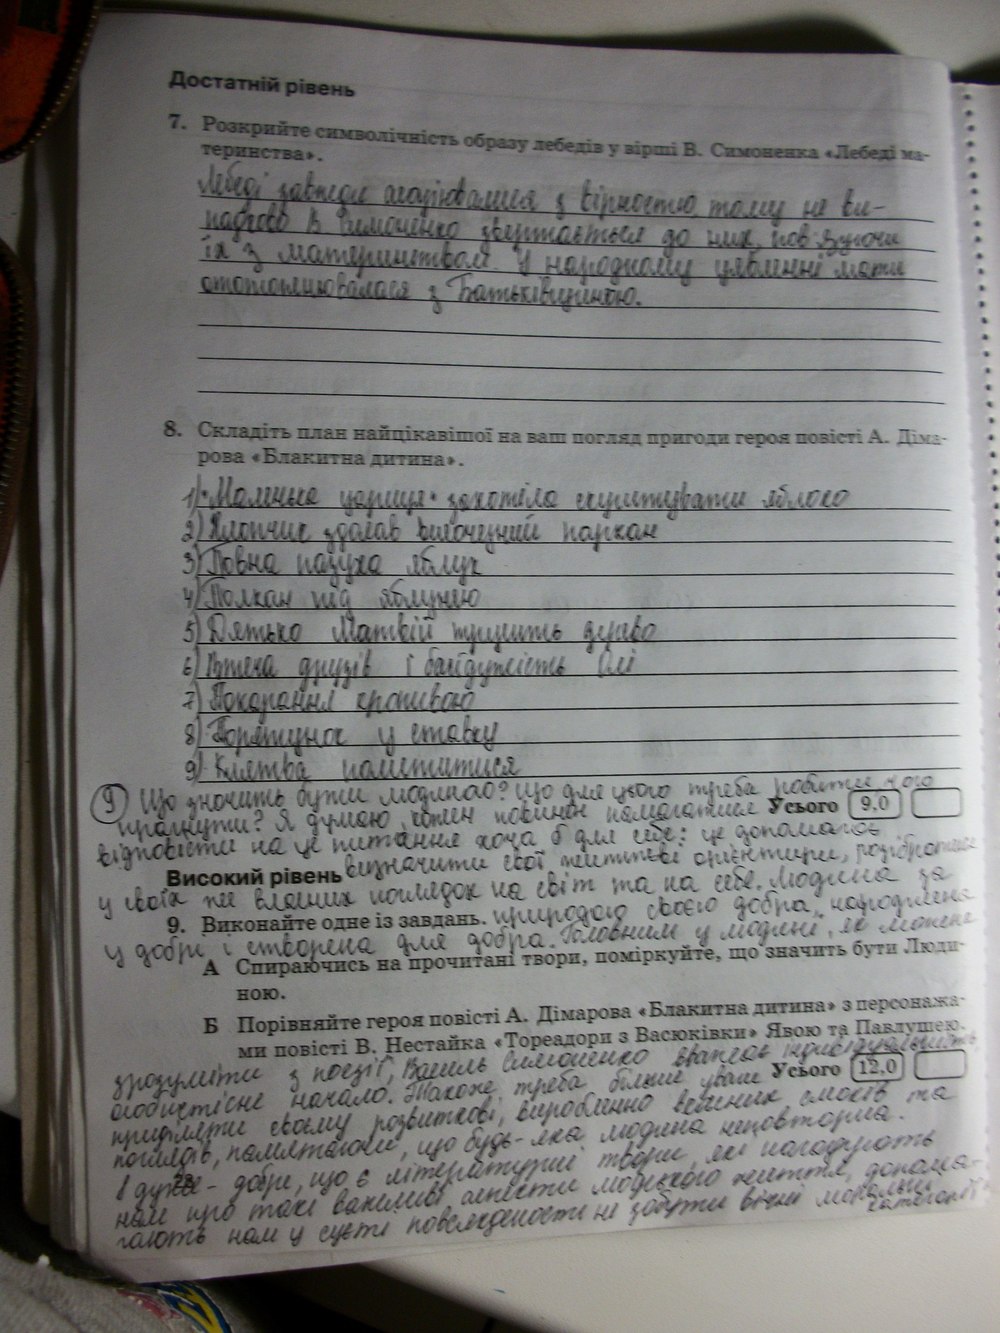 Достатній рівень
7. Розкрийте символічність образу лебедів у вірші В. Симоненка «Лебеді ма-
теринства».
Лебеді завжди асоціювалися з вірністю тому не ви-
падково В. Симоненко звертається до них, пов'язуючи
їх з материнством. У народному уявленні мати
ототожнювалася з Батьківщиною.
8. Складіть план найцікавішої на ваш погляд пригоди героя повісті А. Діма-
рова «Блакитна дитина».
1) "Маленька цариця" захотіла скуштувати яблуко
2) Хлопчик здолав височезний паркан
3) Повна пазуха яблук
4) Полкан під яблунею
5) Дядько Матвій трусить дерево
6) Втеча друзів і байдужість Олі
7) Покарання кропивою
8) Порятунок у ставку
9) Клятва помститися
9) Що значить бути людиною? Що для цього треба робити, чого
прагнути? Я думаю, кожен повинен намагатися
Усього 9.0
відповісти на це питання хоча б для себе: це допомагає
визначити свої життєві орієнтири, розібратися
Високий рівень
у своїх же власних поглядах на світ та на себе. Людина за
9. Виконайте одне із завдань.
природою своєю добра, народжена
у добрі і створена для добра. Головним у людині, як можна
А Спираючись на прочитані твори, поміркуйте, що значить бути Люди-
ною.
Б Порівняйте героя повісті А. Дімарова «Блакитна дитина» з персонажа-
ми повісті В. Нестайка «Тореадори з Васюківки» Явою та Павлушею.
зрозуміти з поезії, Василь Симоненко вважає індивідуальність,
Усього 12,0
особистісне начало. Також треба більше уваги
приділяти своєму розвиткові, виробленню власних смаків та
поглядів, пам'ятаючи, що будь-яка людина неповторна.
І дуже добре, що є літературні твори, які нагадують
28
нам про такі важливі аспекти людського життя, допома-
гають нам у суєті повсякденності не забути вічні моральні
категорії